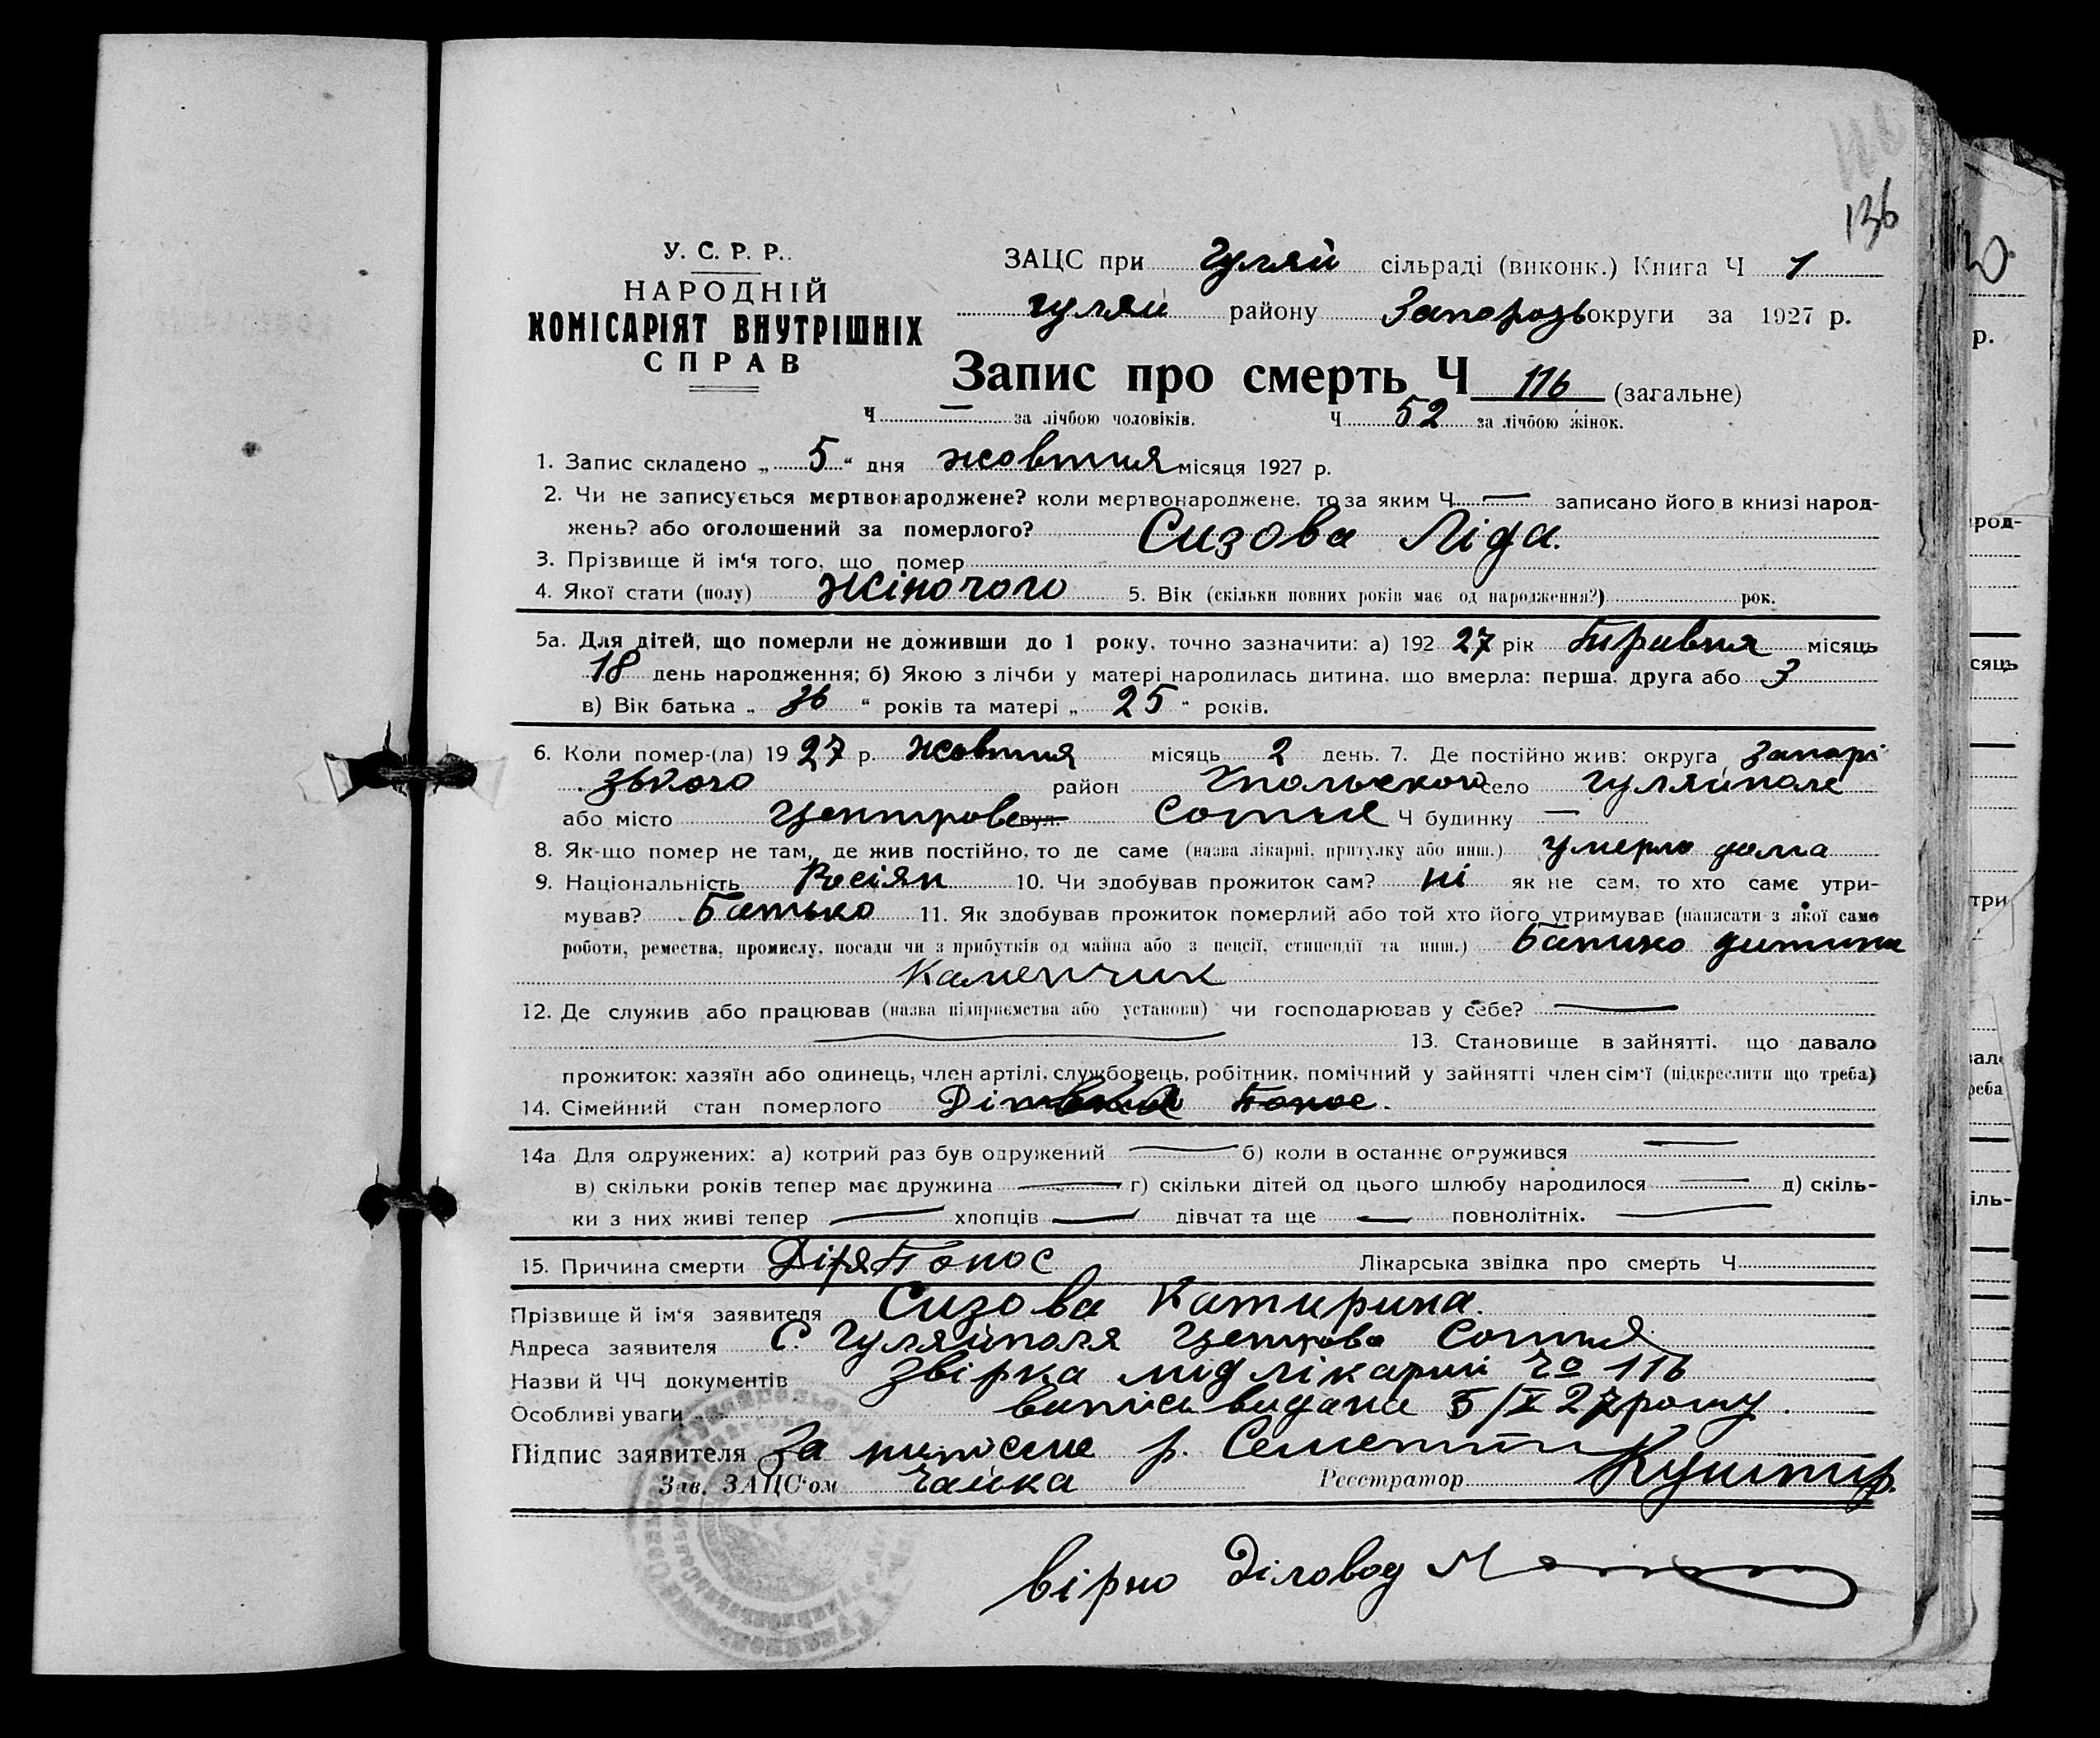 136
У. С. Р. Р.
НАРОДНІЙ
КОМІСАРІЯТ ВНУТРІШНІХ
СПРАВ
ЗАЦС при Гуляй сільраді (виконк.) Книга Ч 1
Гуляй району Запорозь округи за 1927 р.
Запис про смерть Ч 116 (загальне)
Ч — за лічбою чоловіків. Ч 52 за лічбою жінок.
1. Запис складено „ 5 “ дня жовтня місяця 1927 р.
2. Чи не записується мертвонароджене? коли мертвонароджене, то за яким Ч — записано його в книзі народ-
жень? або оголошений за померлого?
3. Прізвище й ім‘я того, що помер Сизова Ліда.
4. Якої стати (полу) жіночого 5. Вік (скільки повних років має од народження?) рок.
5а. Для дітей, що померли не доживши до 1 року, точно зазначити: а) 192 27 рік Травня місяць
18 день народження; б) Якою з лічби у матері народилась дитина, що вмерла: перша, друга або 3
в) Вік батька „ 36 “ років та матері „ 25 “ років.
6. Коли помер-(ла) 19 27 р. жовтня місяць 2 день. 7. Де постійно жив: округа Запорі
зького район село Гуляйполе
або місто Центрово вул. Сотня Ч будинку —
8. Як-що помер не там, де жив постійно, то де саме (назва лікарні, притулку або инш.) умерло дома
9. Національність Росіян 10. Чи здобував прожиток сам? ні як не сам, то хто саме утри-
мував? Батько 11. Як здобував прожиток померлий або той хто його утримував (написати з якої саме
роботи, ремества, промислу, посади чи з прибутків од майна або з пенсії, стипендії та инш.) Батько дитини
Каменчик
12. Де служив або працював (назва підприємства або установи) чи господарював у себе? —
— 13. Становище в зайнятті, що давало
прожиток: хазяїн або одинець, член артілі, службовець, робітник, помічний у зайнятті член сім‘ї (підкреслити що треба)
14. Сімейний стан померлого Понос.
14а Для одружених: а) котрий раз був одружений — б) коли в останнє одружився —
в) скільки років тепер має дружина — г) скільки дітей од цього шлюбу народилося — д) скіль-
ки з них живі тепер — хлопців — дівчат та ще — повнолітніх. —
15. Причина смерти Понос Лікарська звідка про смерть Ч
Прізвище й ім‘я заявителя Сизова Катирина.
Адреса заявителя С. Гуляйполя Центрова Сотня
Назви й ЧЧ документів Звірка лікарні Чо 116
Особливі уваги випісь видана 5/X 27 року.
Підпис заявителя За р.
Зав. ЗАЦС‘ом Чайка Реєстратор Кушнір
вірно Діловод